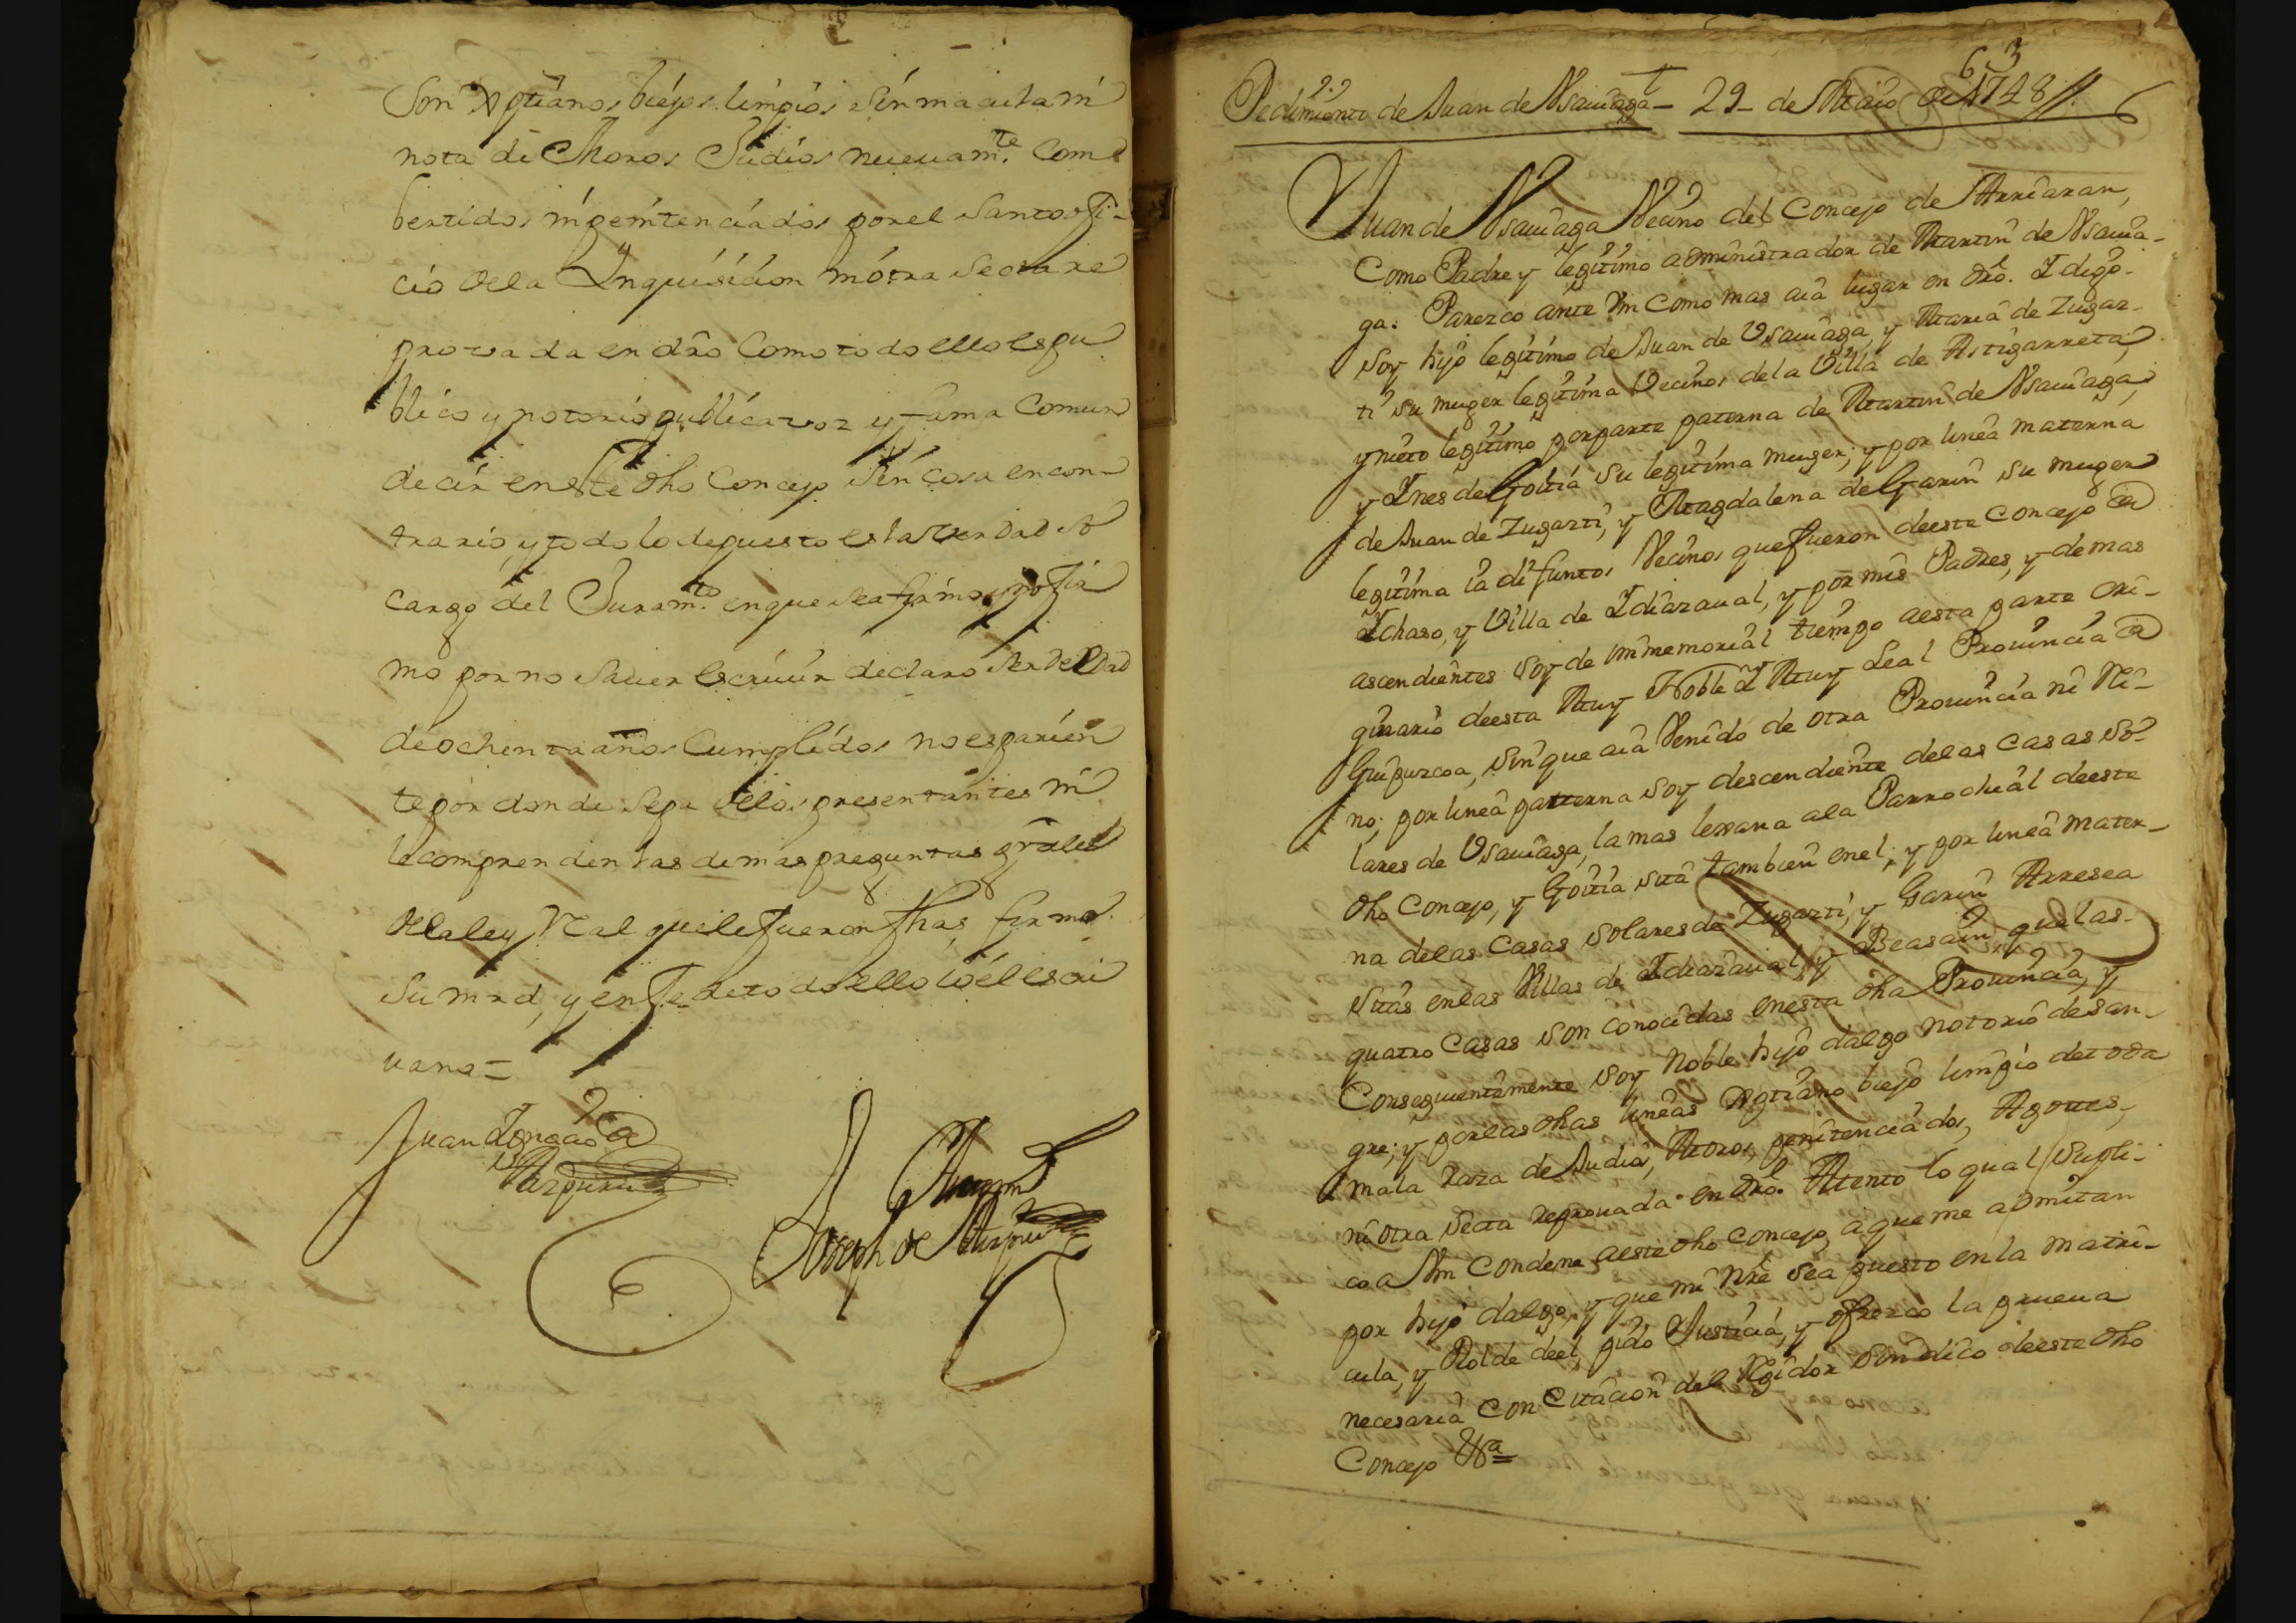 Son Xptianos biejos limpios sin macula ni
nota de Moros Judios nueuamte. Com
bertidos ni penitenciados por el Santo ofi-
cio de la Inquisicion ni otra Secta re
provada en dro Como todo ello es pu
blico y notorio publica voz y fama Comun
decir en este dho Concejo Sin Cosa en con-
trario y todo lo depuesto es la verdad so
cargo del Juramto. en que se afirmo, y no fir
mo por no Sauer escriuir declaro Ser de edad
de ochenta años Cumplidos no es parien
te por donde Sepa de los presentantes ni
le comprenden las demas preguntas grales
de la ley Real que le fueron fhas, firmo
Su mrd, y en fe de todo ello io el escri
uano =
Juan Ignacio de
Aizpuru
Joseph de Aizpuru
63
Pedimiento de Juan de Vsauiaga - 29 - de Maio de 1748 //.
Juan de Vsauiaga Vecino del Concejo de Arriaran,
Como Padre y legitimo administrador de Martin de Vsauia-
ga. Parezco ante Vm Como mas aia lugar en dro. I digo
Soy hijo legitimo de Juan de Vsauiaga, y Maria de Zugaz-
ti su muger legitima Vecinos de la Villa de Astigarreta,
y nieto legitimo por parte paterna de Martin de Vsauiaga,
y Ines de Goitia su legitima muger; y por linea materna
de Juan de Zugazti, y Magdalena de Garin su muger
legitima ia difuntos Vecinos que fueron de este Concejo de
Ichaso, y Villa de Idiazaual, y por mis Padres, y demas
ascendientes soy de immemorial tiempo a esta parte ori-
ginario de esta Muy Noble I Muy Leal Prouincia de
Guipuzcoa, sin que aia Venido de otra Prouincia ni Rei-
no; por linea paterna soy descendiente de las Casas so-
lares de Vsauiaga, la mas lexana a la Parrochial de este
dho Concejo, y Goitia sita tambien en el; y por linea mater-
na de las Casas solares de Zugazti, y Garin Arresea
sitas en las Villas de Idiazaual, y Beasain, que las
quatro Casas son conocidas en esta dha Prouincia, y
Consequentemente soy Noble hijo dalgo notorio de san-
gre; y por las dhas lineas Xptiano biejo limpio de toda
mala Raza de Judios, Moros, penitenciados, Agotes,
ni otra Secta reprouada en dro. Atento lo qual Supli-
co a Vm Condene a este dho Concejo, a que me admitan
por hijo dalgo, y que mi Nre sea puesto en la Matri-
cula, y Rolde de el, pido Justicia, y ofrezco la prueua
necesaria Con Citacion del Regidor Sindico de este dho
Concejo &a =